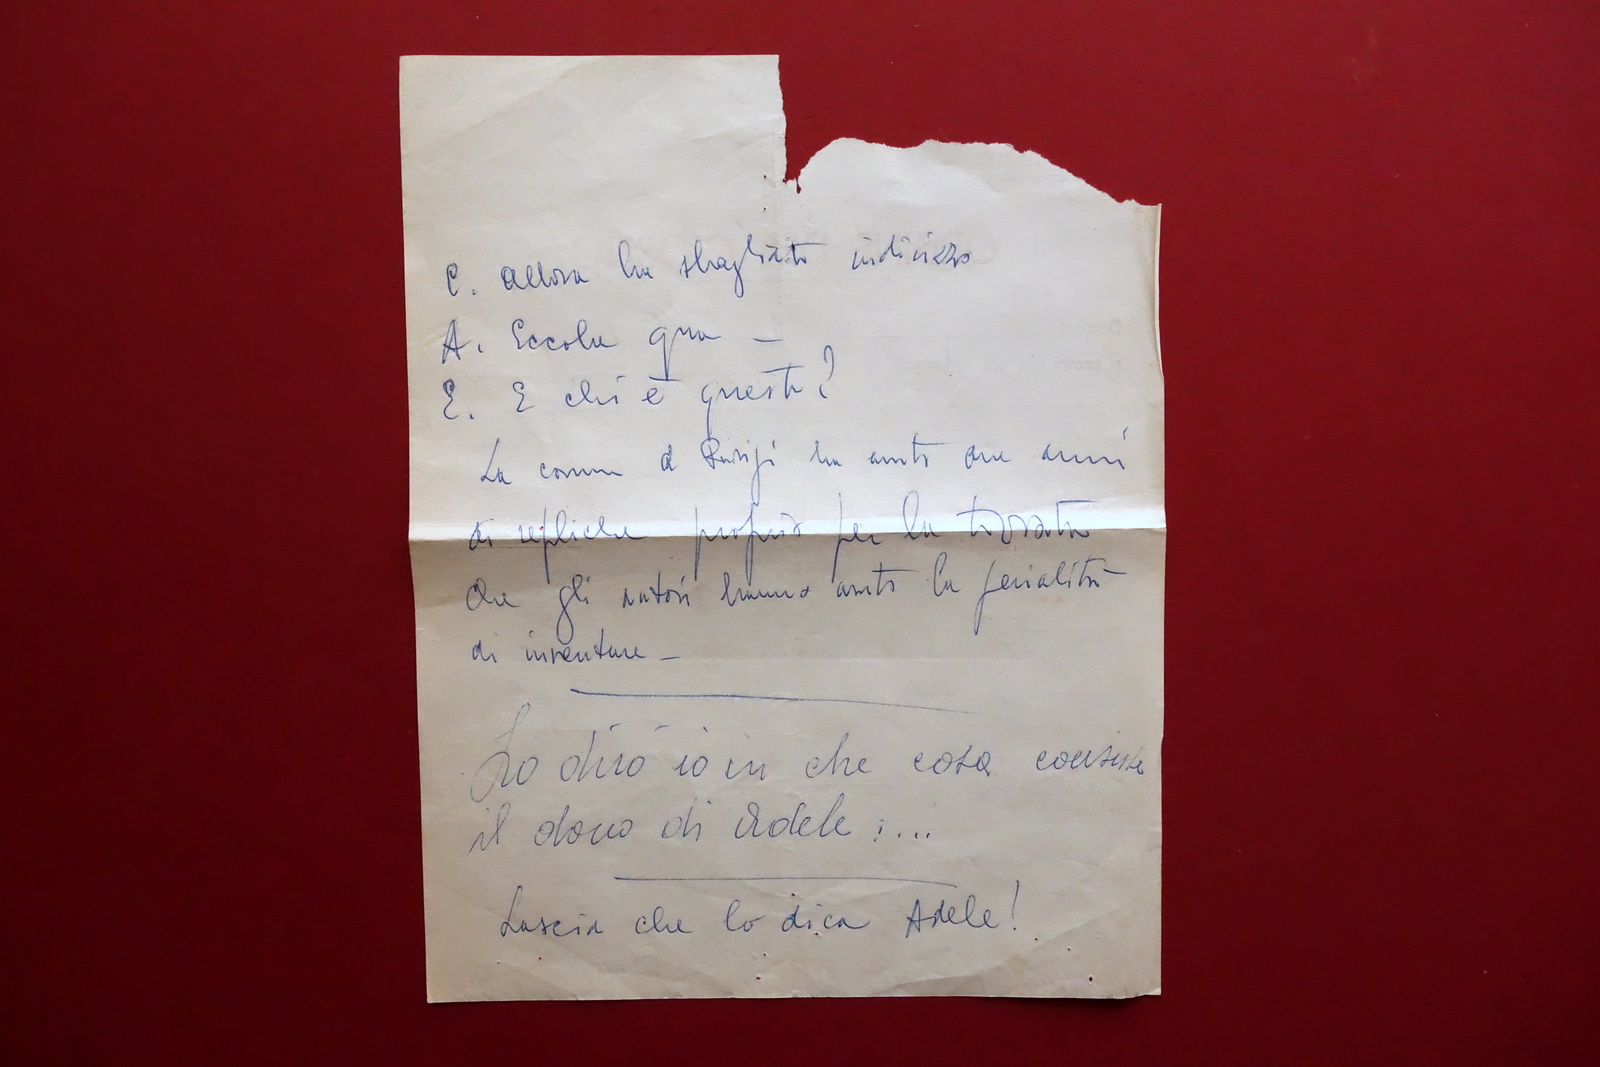 C. allora ha sbagliato indirizzo
A. Eccola qua –
E. E chi è questo?
La comm d Parigi ha avuto due anni
di repliche proprio per la trovata
che gli autori hanno avuto la genialità
di inventare –
Lo dirò io in che cosa consiste
il dono di Adele :...
Lascia che lo dica Adele!